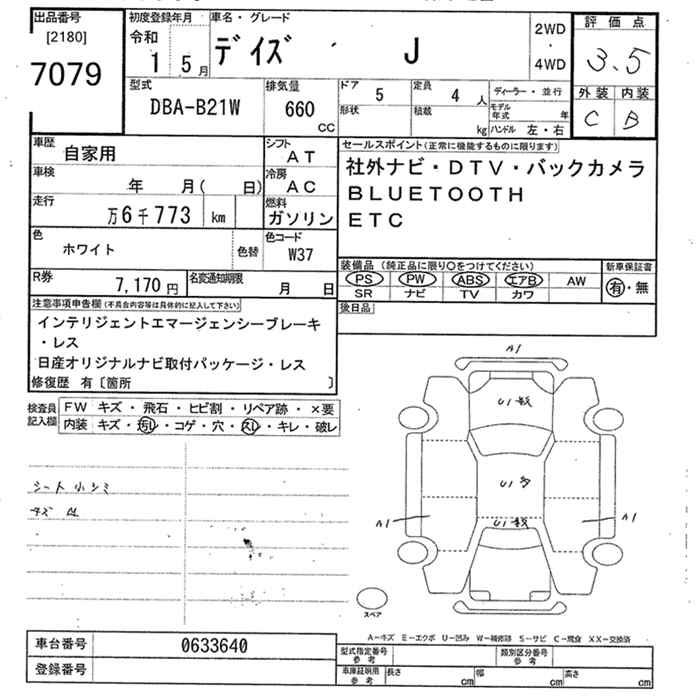 出品番号
[2180]
7079
初度登録年月
令和
1 5月
車名・グレード
デイズ J
2WD
・
4WD
評価点
3.5
外装 内装
C B
型式
DBA-B21W
排気量
660
cc
ドア
5
形状
定員
4 人
積載
kg
ディーラー・並行
モデル年式 年
ハンドル 左・右
車歴
自家用
車検
年 月( 日)
走行
万6千773 km
色
ホワイト
色替
シフト
AT
冷房
AC
燃料
ガソリン
色コード
W37
セールスポイント(正常に機能するものに限ります)
社外ナビ・DTV・バックカメラ
BLUETOOTH
ETC
R券
7,170円
名変通知期限
月 日
装備品(純正品に限り○をつけてください)
PS PW ABS エアB AW
SR ナビ TV カワ
新車保証書
有・無
後日品
注意事項申告欄(不具合内容等は具体的に記入して下さい)
インテリジェントエマージェンシーブレーキ
・レス
日産オリジナルナビ取付パッケージ・レス
修復歴 有〔箇所 〕
検査員
記入欄
FW キズ・飛石・ヒビ割・リペア跡・×要
内装 キズ・汚レ・コゲ・穴・スレ・キレ・破レ
シート 小シミ
A1
U1
U1 多
U1
A1
A1
スペア
A−キズ E−エクボ U−凹み W−補修跡 S−サビ C−腐食 XX−交換済
車台番号
0633640
登録番号
型式指定番号
参考
類別区分番号
参考
車庫証明用
参考
長さ cm
幅 cm
高さ cm